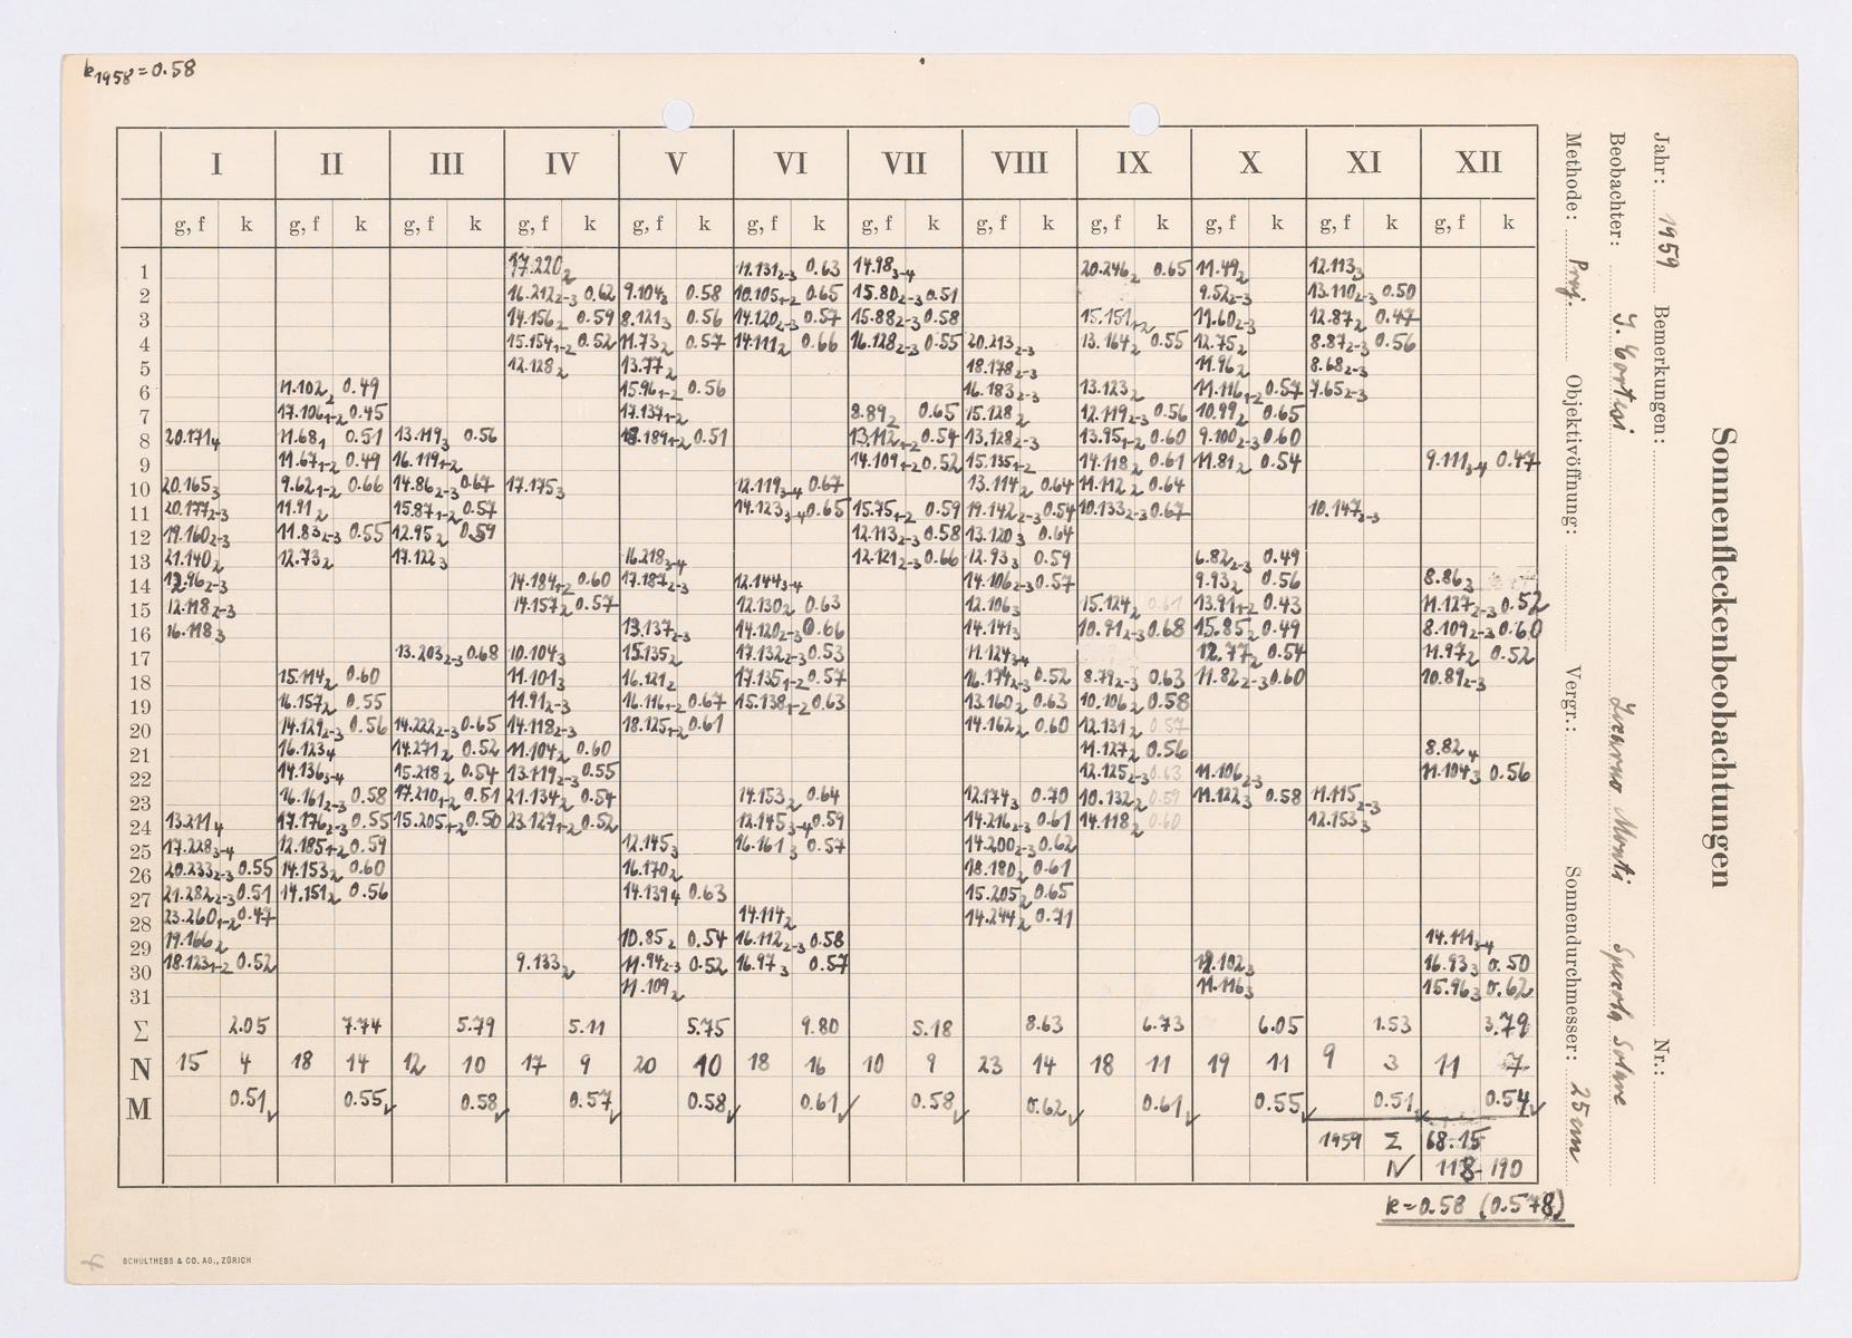 k1958=0.58
I II III IV V VI VII VIII IX X XI XII
g, f k g, f k g, f k g, f k g, f k g, f k g, f k g, f k g, f k g, f k g, f k g, f k
1 17.220₂ 11.131₂₋₃ 0.63 14.98₃₋₄ 20.246₂ 0.65 11.49₂ 12.113₃
2 16.212₂₋₃ 0.62 9.104₃ 0.58 10.105₁₋₂ 0.65 15.80₂₋₃ 0.51 9.52₂₋₃ 13.110₂₋₃ 0.50
3 14.156₂ 0.59 8.121₃ 0.56 14.120₂₋₃ 0.57 15.88₂₋₃ 0.58 15.151₁₋₂ 11.60₂₋₃ 12.87₂ 0.47
4 15.154₁₋₂ 0.52 11.73₂ 0.57 14.111₂ 0.66 16.128₂₋₃ 0.55 20.213₂₋₃ 13.164₂ 0.55 12.75₂ 8.87₂₋₃ 0.56
5 12.128₂ 13.77₂ 18.178₂₋₃ 11.96₂ 8.68₂₋₃
6 11.102₂ 0.49 15.96₁₋₂ 0.56 16.183₂₋₃ 13.123₂ 11.116₁₋₂ 0.57 7.65₂₋₃
7 17.106₁₋₂ 0.45 17.137₁₋₂ 8.89₂ 0.65 15.128₂ 12.119₂₋₃ 0.56 10.99₂ 0.65
8 20.171₄ 11.68₁ 0.51 13.119₃ 0.56 18.189₁₋₂ 0.51 13.112₁₋₂ 0.54 13.128₂₋₃ 13.95₁₋₂ 0.60 9.100₂₋₃ 0.60
9 11.67₁₋₂ 0.49 16.119₁₋₂ 14.109₁₋₂ 0.52 15.135₁₋₂ 14.118₂ 0.61 11.81₂ 0.54 9.111₃₋₄ 0.47
10 20.165₃ 9.62₁₋₂ 0.66 14.86₂₋₃ 0.67 17.175₃ 12.119₃₋₄ 0.67 13.114₂ 0.64 11.112₂ 0.64
11 20.177₂₋₃ 11.91₂ 15.87₁₋₂ 0.57 14.123₃₋₄ 0.65 15.75₁₋₂ 0.59 19.142₂₋₃ 0.54 10.133₂₋₃ 0.67 10.147₃₋₃
12 19.160₂₋₃ 11.83₂₋₃ 0.55 12.95₂ 0.59 12.113₂₋₃ 0.58 13.120₃ 0.64
13 21.140₂ 12.73₂ 17.122₃ 16.218₃₋₄ 12.121₂₋₃ 0.66 12.93₃ 0.59 6.82₂₋₃ 0.49
14 .96₂₋₃ 14.184₁₋₂ 0.60 17.187₂₋₃ 12.144₃₋₄ 14.106₂₋₃ 0.57 9.93₂ 0.56 8.86₃
15 12.118₂₋₃ 14.157₂ 0.57 12.130₂ 0.63 12.106₃ 15.124₂ 0.61 13.91₁₋₂ 0.43 11.127₂₋₃ 0.52
16 16.118₃ 13.137₂₋₃ 14.120₂₋₃ 0.66 14.141₃ 10.91₂₋₃ 0.68 15.85₂ 0.49 8.109₂₋₃ 0.60
17 13.203₂₋₃ 0.68 10.104₃ 15.135₂ 17.132₂₋₃ 0.53 11.124₃₋₄ 12.77₂ 0.54 11.97₂ 0.52
18 15.114₂ 0.60 11.101₃ 16.121₂ 17.135₁₋₂ 0.57 16.174₂₋₃ 0.52 8.79₂₋₃ 0.63 11.82₂₋₃ 0.60 10.89₂₋₃
19 16.157₂ 0.55 11.91₂₋₃ 16.116₁₋₂ 0.67 15.138₁₋₂ 0.63 13.160₂ 0.63 10.106₂ 0.58
20 14.129₂₋₃ 0.56 14.222₂₋₃ 0.65 14.118₂₋₃ 18.125₁₋₂ 0.61 14.162₂ 0.60 12.131₂ 0.57
21 16.123₄ 14.271₂ 0.52 11.104₂ 0.60 11.127₂ 0.56 8.82₄
22 14.136₃₋₄ 15.218₂ 0.54 13.119₂₋₃ 0.55 12.125₂₋₃ 0.63 11.106₂₋₃ 11.104₃ 0.56
23 16.161₂₋₃ 0.58 17.210₁₋₂ 0.51 21.134₂ 0.54 14.153₂ 0.64 12.174₃ 0.70 10.132₂ 0.59 11.122₃ 0.58 11.115₂₋₃
24 13.211₄ 17.176₂₋₃ 0.55 15.205₁₋₂ 0.50 23.127₁₋₂ 0.52 12.145₃₋₄ 0.59 14.216₂₋₃ 0.61 14.118₂ 0.60 12.153₃
25 17.228₃₋₄ 12.185₁₋₂ 0.59 12.145₃ 16.161₃ 0.57 14.200₂₋₃ 0.62
26 20.233₂₋₃ 0.55 14.153₂ 0.60 16.170₂ 18.180₂ 0.61
27 21.282₂₋₃ 0.51 14.151₂ 0.56 14.139₄ 0.63 15.205₂ 0.65
28 23.260₁₋₂ 0.47 14.114₂ 14.244₂ 0.71
29 19.166₂ 10.85₂ 0.54 16.112₂₋₃ 0.58 14.111₃₋₄
30 18.123₁₋₂ 0.52 9.133₂ 11.94₂₋₃ 0.52 16.97₃ 0.57 .102₃ 16.93₃ 0.50
31 11.109₂ 11.116₃ 15.96₃ 0.62
Σ 2.05 7.74 5.79 5.11 5.75 9.80 5.18 8.63 6.73 6.05 1.53 3.79
N 15 4 18 14 12 10 17 9 20 10 18 16 10 9 23 14 18 11 19 11 9 3 11 7
M 0.51✓ 0.55✓ 0.58✓ 0.57✓ 0.58✓ 0.61✓ 0.58✓ 0.62✓ 0.61✓ 0.55✓ 0.51✓ 0.54✓
1959 Σ 68.15
N 118 - 190
k=0.58 (0.578)
SCHULTHESS & CO. AG., ZÜRICH
Sonnenfleckenbeobachtungen
Jahr: 1959 Bemerkungen: Nr.:
Beobachter: S. Cortesi Locarno Monti Specola Solare
Methode: Proj. Objektivöffnung: Vergr.: Sonnendurchmesser: 25 cm